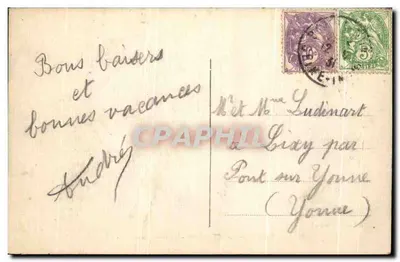 Bons baisers
et
bonnes vacances
André
Mr et Mme Ludinart
à Lixy par
Pont sur Yonne
(Yonne)
CPAPHIL
5